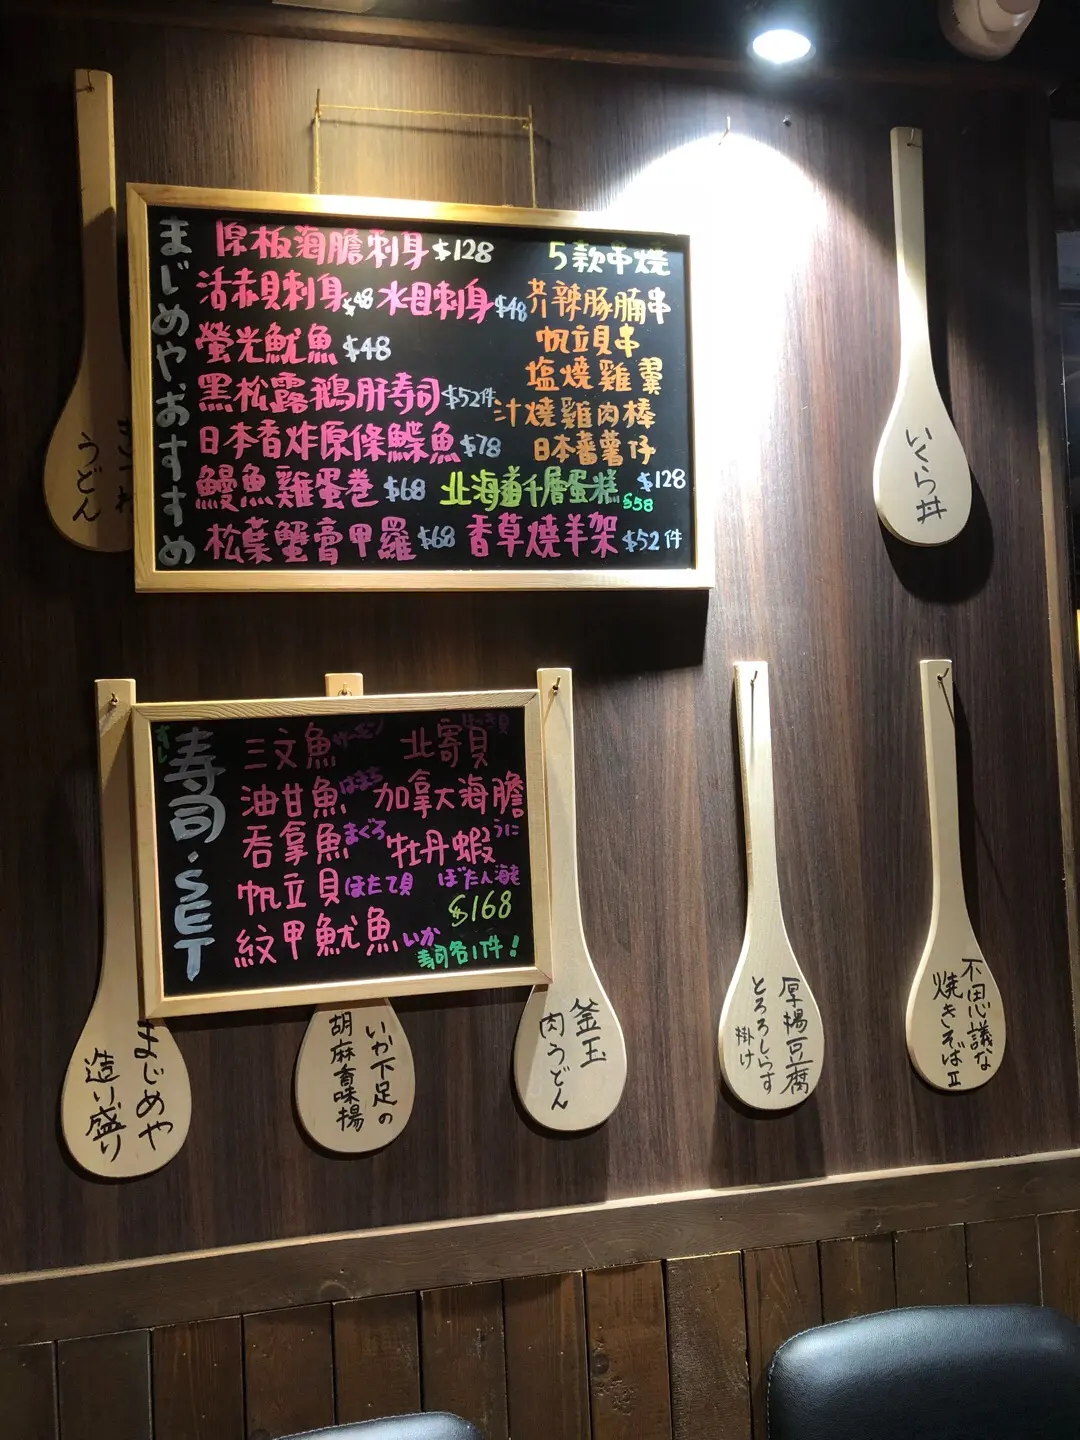 まじめやおすすめ
厚板海膽刺身 $128
活赤貝刺身 $48 水貝刺身 $48
螢光魷魚 $48
黑松露鵝肝寿司 $52件
日本香炸原條鰈魚 $78
鰻魚雞蛋卷 $68
松葉蟹膏甲羅 $68
5款串燒
芥辣豚腩串
帆立貝串
塩燒雞翼
汁燒雞肉棒
日本蕃薯仔
$128
北海道千層蛋糕 $58
香草燒羊架 $52件
うどん
いくら丼
寿司・SET
三文魚 サーモン
油甘魚 はまち
吞拿魚 まぐろ
帆立貝 ほたて貝
紋甲魷魚 いか
北寄貝
加拿大海膽 うに
牡丹蝦 ぼたん海老
$168
寿司各1件!
まじめや
造り盛り
いか下足の
胡麻香味揚
釜玉
肉うどん
厚揚豆腐
とろろしらす
掛け
不思議な
焼きそばII